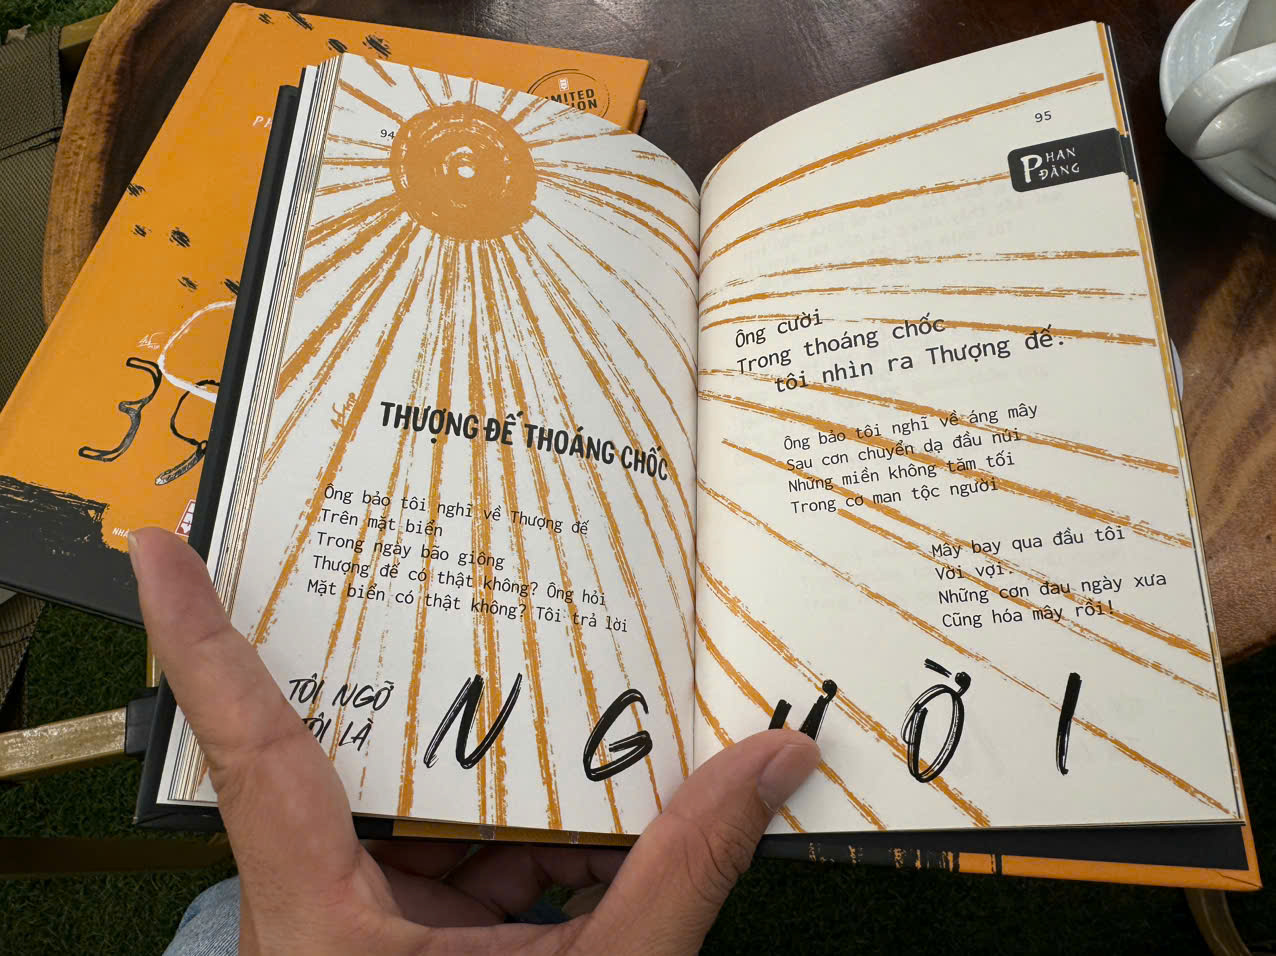 94
THƯỢNG ĐẾ THOÁNG CHỐC
Ông bảo tôi nghĩ về Thượng đế
Trên mặt biển
Trong ngày bão giông
Thượng đế có thật không? Ông hỏi
Mặt biển có thật không? Tôi trả lời
TÔI NGỠ
TÔI LÀ
NGƯỜI
95
PHAN
ĐĂNG
Ông cười
Trong thoáng chốc
tôi nhìn ra Thượng đế.
Ông bảo tôi nghĩ về áng mây
Sau cơn chuyển dạ đầu núi
Những miền không tăm tối
Trong cơ man tộc người
Mây bay qua đầu tôi
Vời vợi.
Những cơn đau ngày xưa
Cũng hóa mây rồi!
LIMITED